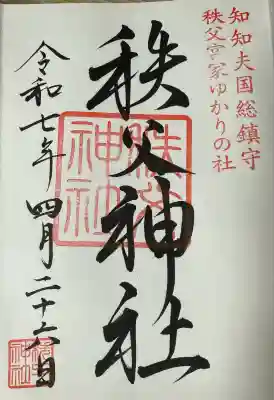 知知夫国総鎮守
秩父宮家ゆかりの社
秩父神社
秩父
神社
令和七年 四月 二十六日